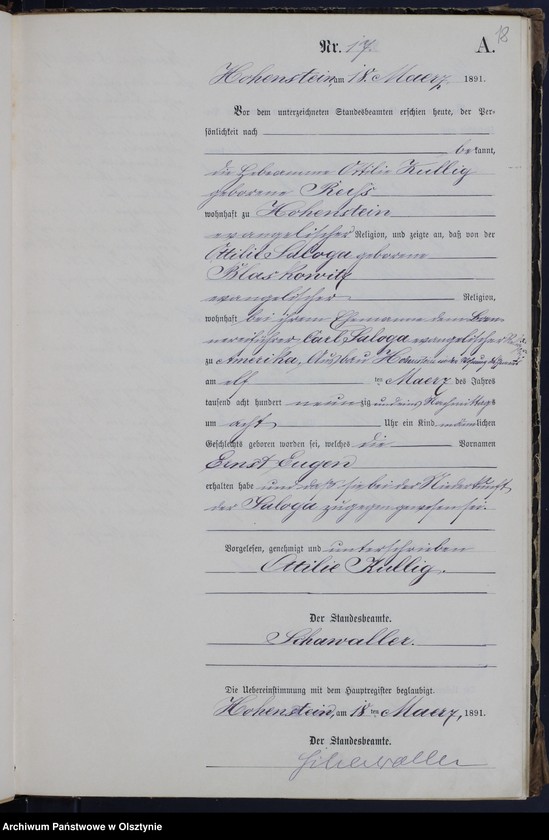 18
Nr. 17. A.
Hohenstein, am 18. Maerz 1891.
Vor dem unterzeichneten Standesbeamten erschien heute, der Per-
sönlichkeit nach
bekannt,
die Hebeamme Ottilie Kullig
geborene Reiß
wohnhaft zu Hohenstein
evangelischer Religion, und zeigte an, daß von der
Ottilie Saloga geborene
Blaskowitz
evangelischer Religion,
wohnhaft bei ihrem Ehemanne dem
Carl Saloga evangelischer
zu Amerika, Ausbau Hohenstein in der Wohnung des
am elf ten Maerz des Jahres
tausend acht hundert neunzig und eins Nachmittags
um acht Uhr ein Kind männlichen
Geschlechts geboren worden sei, welches die Vornamen
Ernst Eugen
erhalten habe und daß sie bei der Niederkunft
der Saloga zugegen gewesen sei.
Vorgelesen, genehmigt und unterschrieben
Ottilie Kullig.
Der Standesbeamte.
Schawaller.
Die Uebereinstimmung mit dem Hauptregister beglaubigt.
Hohenstein, am 18 ten Maerz, 1891.
Der Standesbeamte.
Schawaller
Archiwum Państwowe w Olsztynie